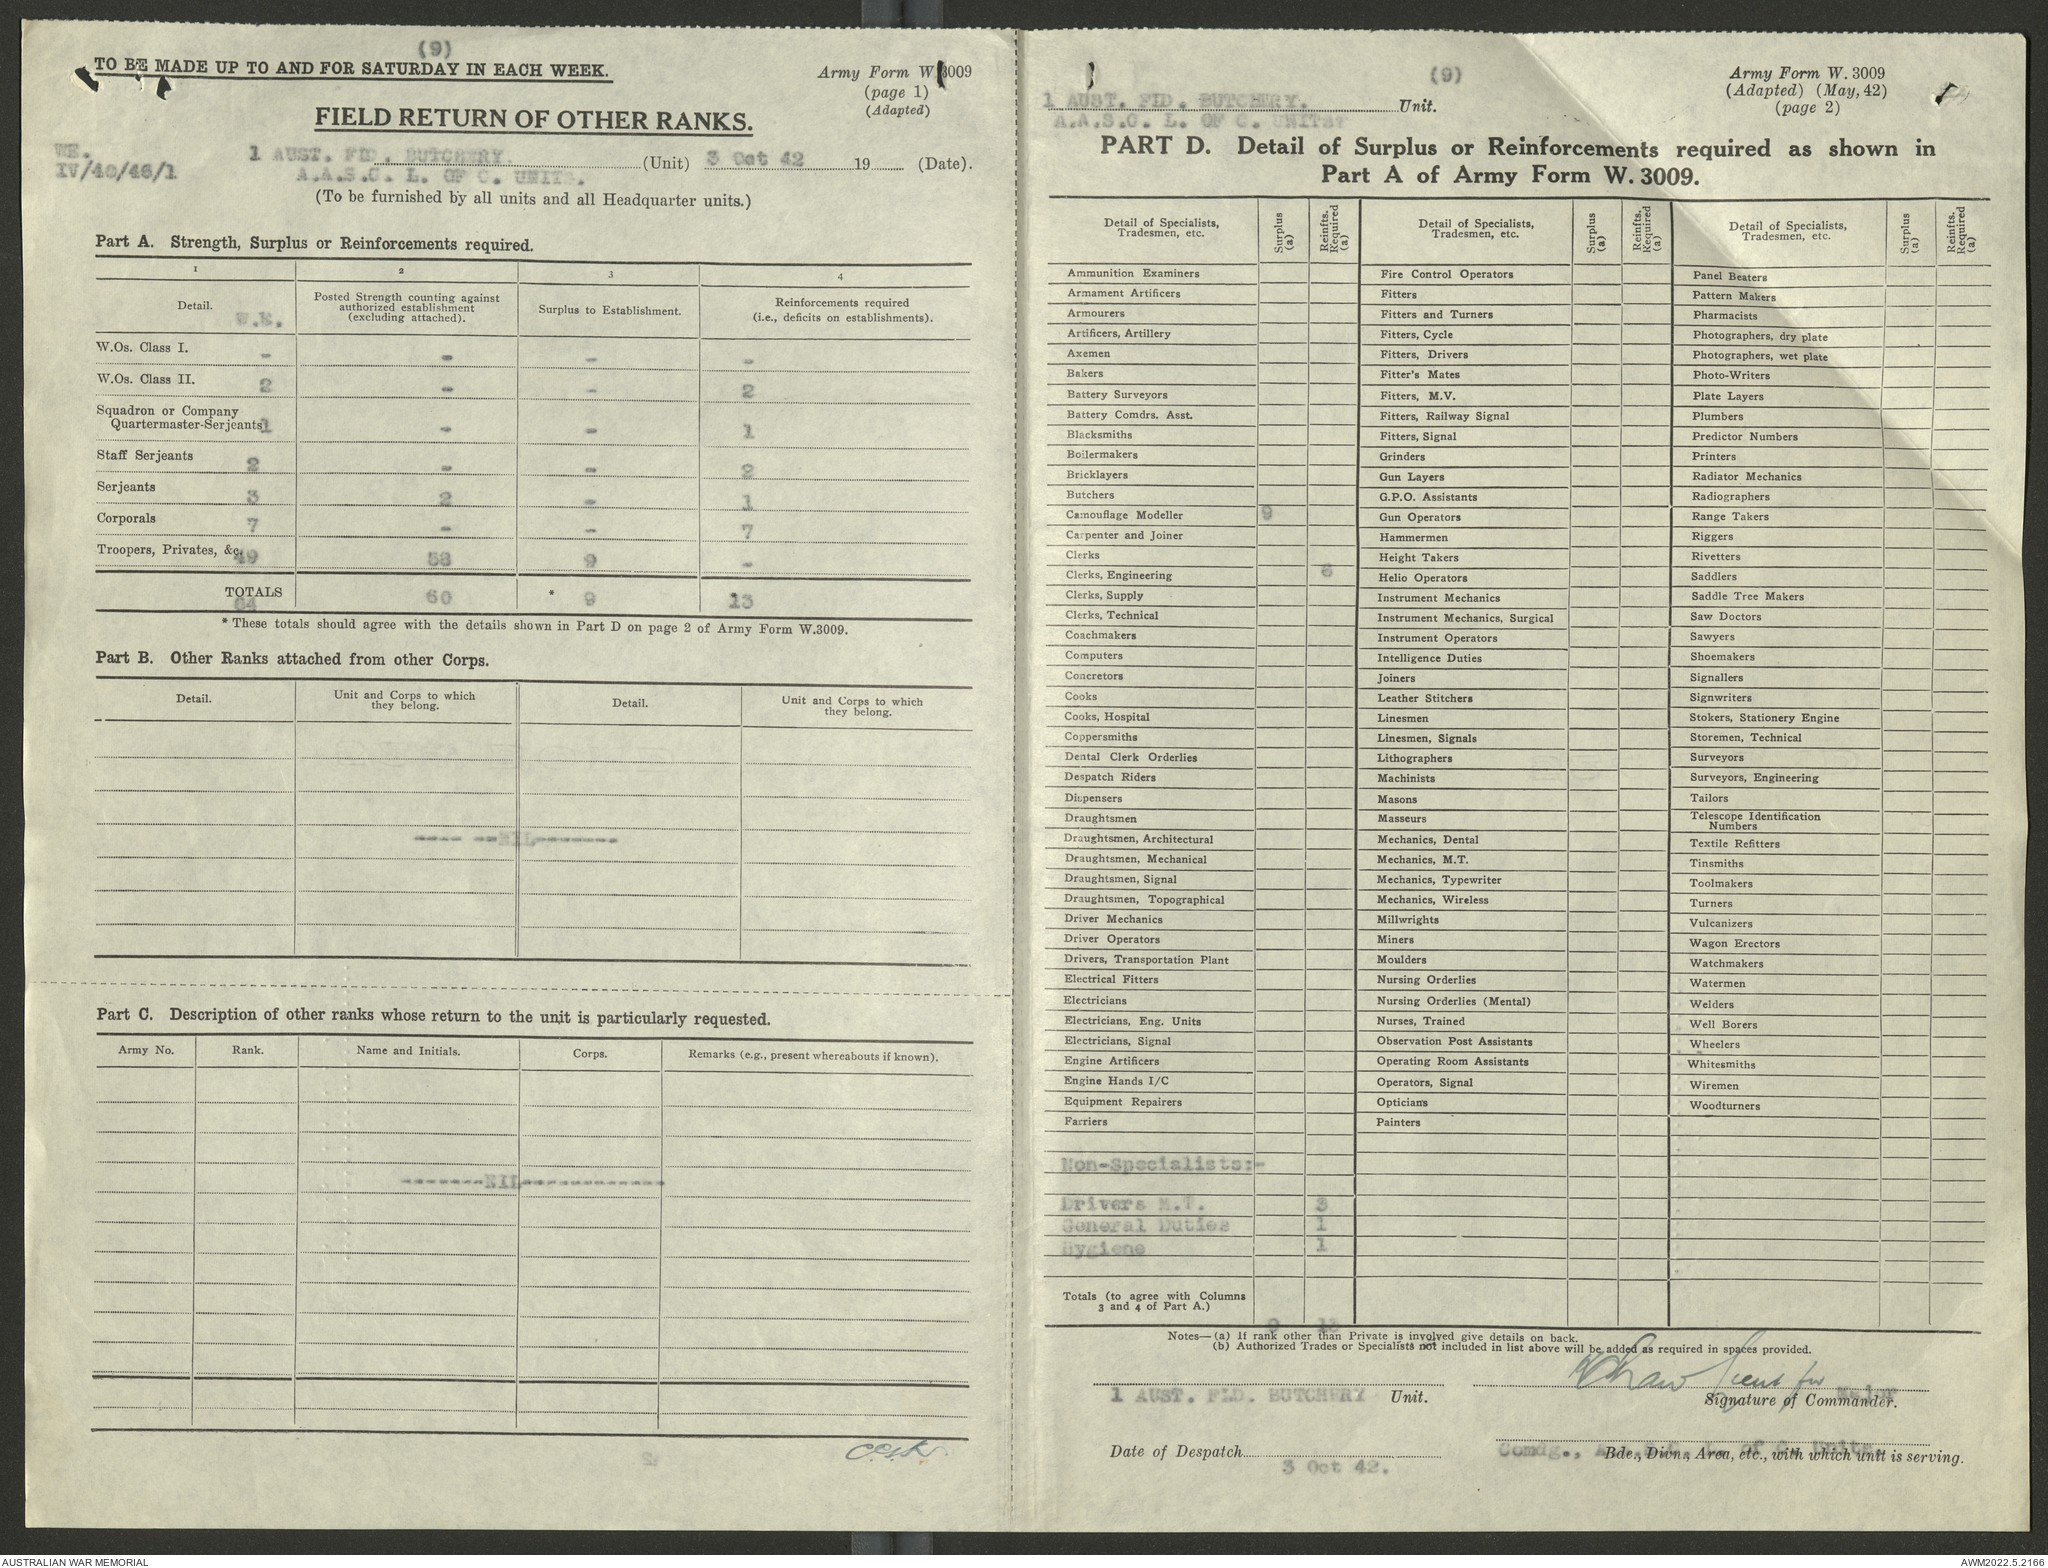 (9)
TO BE MADE UP TO AND FOR SATURDAY IN EACH WEEK.
Army Form W.3009
(page 1)
(Adapted)
FIELD RETURN OF OTHER RANKS.
WE.
IV/48/46/1
1 AUST. FLD. BUTCHERY. (Unit) 3 Oct 42 19 (Date).
A.A.S.C. L. OF C. UNITS.
(To be furnished by all units and all Headquarter units.)
Part A. Strength, Surplus or Reinforcements required.
1 2 3 4
Detail. W.E. Posted Strength counting against authorized establishment (excluding attached). Surplus to Establishment. Reinforcements required (i.e., deficits on establishments).
W.Os. Class I. - - - -
W.Os. Class II. 2 - - 2
Squadron or Company
Quartermaster-Serjeants 1 - - 1
Staff Serjeants 2 - - 2
Serjeants 3 2 - 1
Corporals 7 - - 7
Troopers, Privates, &c. 49 58 9 -
TOTALS 64 60 * 9 13
* These totals should agree with the details shown in Part D on page 2 of Army Form W.3009.
Part B. Other Ranks attached from other Corps.
Detail. Unit and Corps to which they belong. Detail. Unit and Corps to which they belong.
---- --NIL-------
Part C. Description of other ranks whose return to the unit is particularly requested.
Army No. Rank. Name and Initials. Corps. Remarks (e.g., present whereabouts if known).
-------NIL------------
(9)
Army Form W. 3009
(Adapted) (May, 42)
(page 2)
1 AUST. FLD. BUTCHERY. Unit.
A.A.S.C. L. OF C. UNITS
PART D. Detail of Surplus or Reinforcements required as shown in
Part A of Army Form W. 3009.
Detail of Specialists, Tradesmen, etc. Surplus (a) Reinfts. Required (a) Detail of Specialists, Tradesmen, etc. Surplus (a) Reinfts. Required (a) Detail of Specialists, Tradesmen, etc. Surplus (a) Reinfts. Required (a)
Ammunition Examiners Fire Control Operators Panel Beaters
Armament Artificers Fitters Pattern Makers
Armourers Fitters and Turners Pharmacists
Artificers, Artillery Fitters, Cycle Photographers, dry plate
Axemen Fitters, Drivers Photographers, wet plate
Bakers Fitter's Mates Photo-Writers
Battery Surveyors Fitters, M.V. Plate Layers
Battery Comdrs. Asst. Fitters, Railway Signal Plumbers
Blacksmiths Fitters, Signal Predictor Numbers
Boilermakers Grinders Printers
Bricklayers Gun Layers Radiator Mechanics
Butchers G.P.O. Assistants Radiographers
Camouflage Modeller 9 Gun Operators Range Takers
Carpenter and Joiner Hammermen Riggers
Clerks Height Takers Rivetters
Clerks, Engineering 8 Helio Operators Saddlers
Clerks, Supply Instrument Mechanics Saddle Tree Makers
Clerks, Technical Instrument Mechanics, Surgical Saw Doctors
Coachmakers Instrument Operators Sawyers
Computers Intelligence Duties Shoemakers
Concretors Joiners Signallers
Cooks Leather Stitchers Signwriters
Cooks, Hospital Linesmen Stokers, Stationery Engine
Coppersmiths Linesmen, Signals Storemen, Technical
Dental Clerk Orderlies Lithographers Surveyors
Despatch Riders Machinists Surveyors, Engineering
Dispensers Masons Tailors
Draughtsmen Masseurs Telescope Identification Numbers
Draughtsmen, Architectural Mechanics, Dental Textile Refitters
Draughtsmen, Mechanical Mechanics, M.T. Tinsmiths
Draughtsmen, Signal Mechanics, Typewriter Toolmakers
Draughtsmen, Topographical Mechanics, Wireless Turners
Driver Mechanics Millwrights Vulcanizers
Driver Operators Miners Wagon Erectors
Drivers, Transportation Plant Moulders Watchmakers
Electrical Fitters Nursing Orderlies Watermen
Electricians Nursing Orderlies (Mental) Welders
Electricians, Eng. Units Nurses, Trained Well Borers
Electricians, Signal Observation Post Assistants Wheelers
Engine Artificers Operating Room Assistants Whitesmiths
Engine Hands I/C Operators, Signal Wiremen
Equipment Repairers Opticians Woodturners
Farriers Painters
Non-Specialists:-
Drivers M.T. 3
General Duties 1
Hygiene 1
Totals (to agree with Columns
3 and 4 of Part A.)
9 13
Notes—(a) If rank other than Private is involved give details on back.
(b) Authorized Trades or Specialists not included in list above will be added as required in spaces provided.
1 AUST. FLD. BUTCHERY Unit.
Lieut for Major
Signature of Commander.
Date of Despatch 3 Oct 42.
Comdg.,
Bde., Divn., Area, etc., with which unit is serving.
AUSTRALIAN WAR MEMORIAL
AWM2022.5.2166